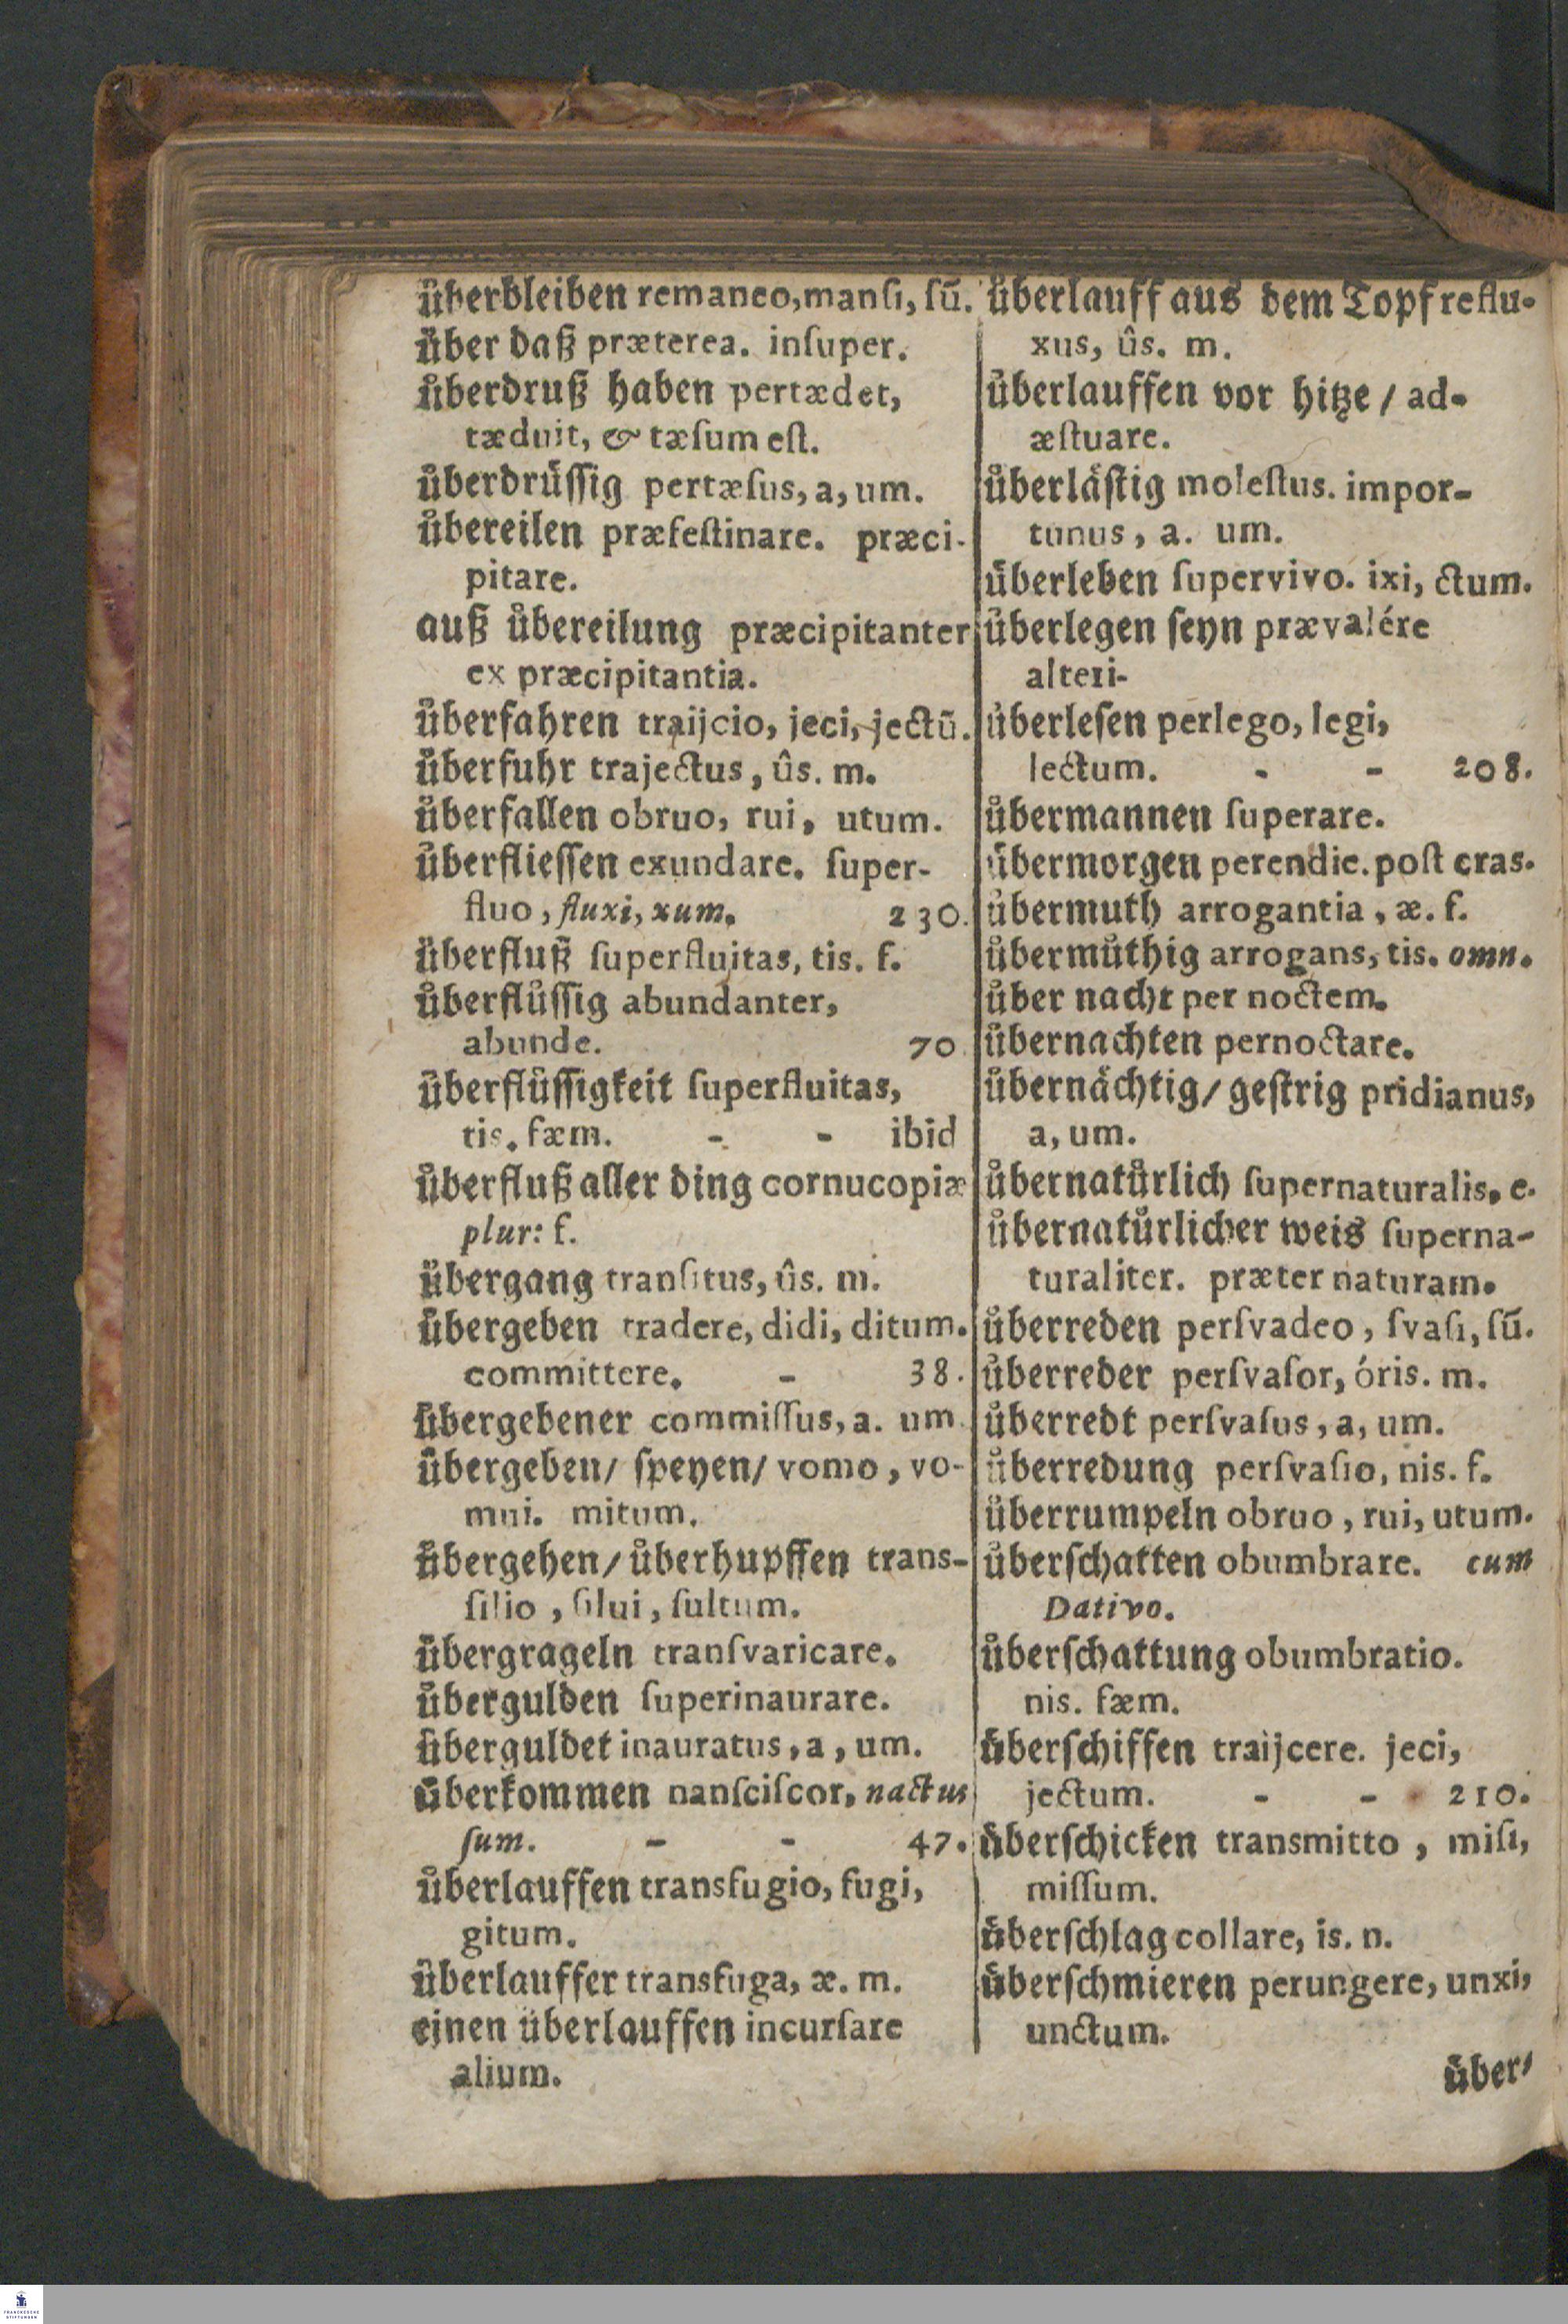 überbleiben remaneo, manſi, ſū.
über daß præterea. inſuper.
überdruß haben pertædet,
tæduit, & tæſum eſt.
überdrüſſig pertæſus, a, um.
übereilen præfeſtinare. præci-
pitare.
auß übereilung præcipitanter
ex præcipitantia.
überfahren traijcio, jeci, jectū.
überfuhr trajectus, ûs. m.
überfallen obruo, rui, utum.
überflieſſen exundare. ſuper-
fluo, fluxi, xum. 230.
überfluß ſuperfluitas, tis. f.
überflüſſig abundanter,
abunde. 70
überflüſſigkeit ſuperfluitas,
tis. fæm. - - ibid
überfluß aller ding cornucopiæ
plur: f.
übergang tranſitus, ûs. m.
übergeben tradere, didi, ditum.
committere. - 38.
übergebener commiſſus, a. um.
übergeben/ ſpeyen/ vomo, vo-
mui. mitum.
übergehen/ überhupffen trans-
ſilio, ſilui, ſultum.
übergrageln tranſvaricare.
übergulden ſuperinaurare.
überguldet inauratus, a, um.
überkommen nanſciſcor, nactus
ſum. - - 47.
überlauffen transfugio, fugi,
gitum.
überlauffer transfuga, æ. m.
einen überlauffen incurſare
alium.
überlauff aus dem Topf reflu-
xus, ûs. m.
überlauffen vor hitze / ad-
æſtuare.
überläſtig moleſtus. impor-
tunus, a. um.
überleben ſupervivo. ixi, ctum.
überlegen ſeyn prævalére
alteri-
überleſen perlego, legi,
lectum. - - 208.
übermannen ſuperare.
übermorgen perendie. poſt cras.
übermuth arrogantia, æ. f.
übermüthig arrogans, tis. omn.
über nacht per noctem.
übernachten pernoctare.
übernächtig/ geſtrig pridianus,
a, um.
übernatürlich ſupernaturalis, e.
übernatürlicher weis ſuperna-
turaliter. præter naturam.
überreden perſvadeo, ſvaſi, ſū.
überreder perſvaſor, óris. m.
überredt perſvaſus, a, um.
überredung perſvaſio, nis. f.
überrumpeln obruo, rui, utum.
überſchatten obumbrare. cum
Dativo.
überſchattung obumbratio.
nis. fæm.
überſchiffen traijcere. jeci,
jectum. - - 210.
überſchicken transmitto, miſi,
miſſum.
überſchlag collare, is. n.
überſchmieren perungere, unxi,
unctum.
über-
FRANCKESCHE
STIFTUNGEN